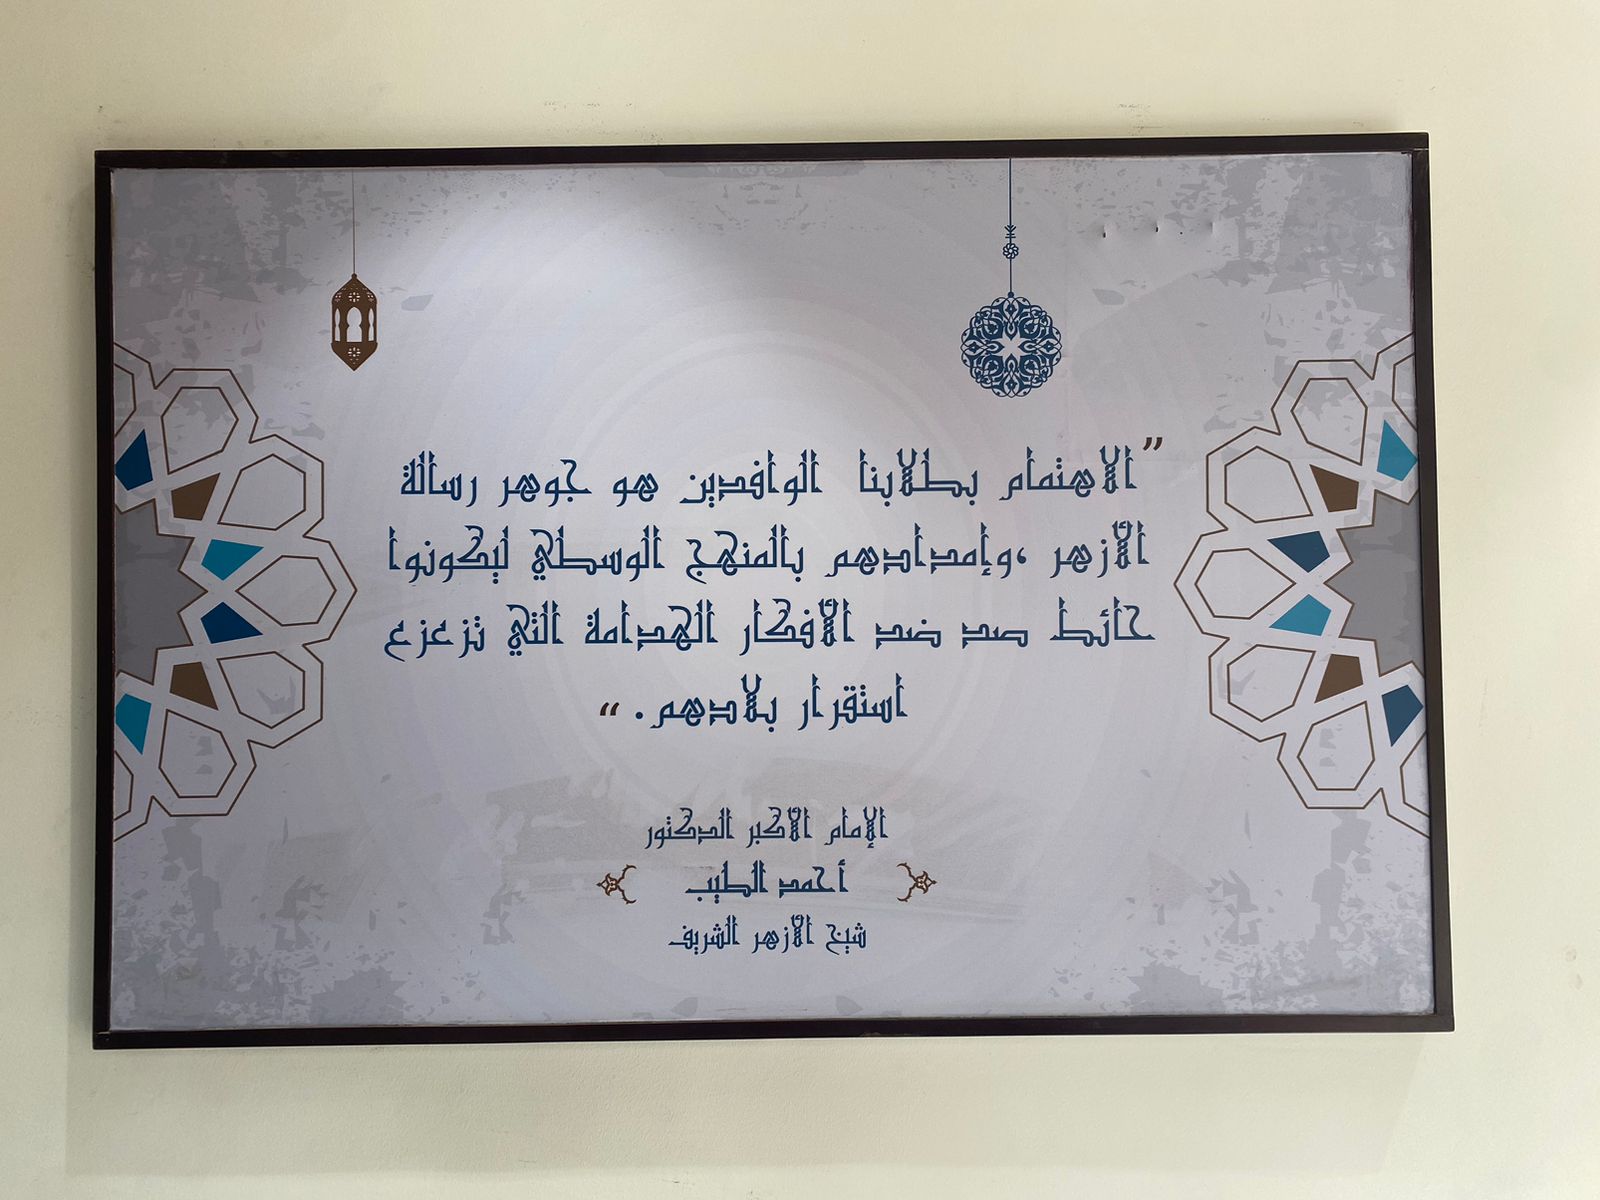 "الاهتمام بطلابنا الوافدين هو جوهر رسالة
الأزهر ،وإمدادهم بالمنهج الوسطي ليكونوا
حائط صد ضد الأفكار الهدامة التي تزعزع
استقرار بلادهم. "
الإمام الأكبر الدكتور
أحمد الطيب
شيخ الأزهر الشريف